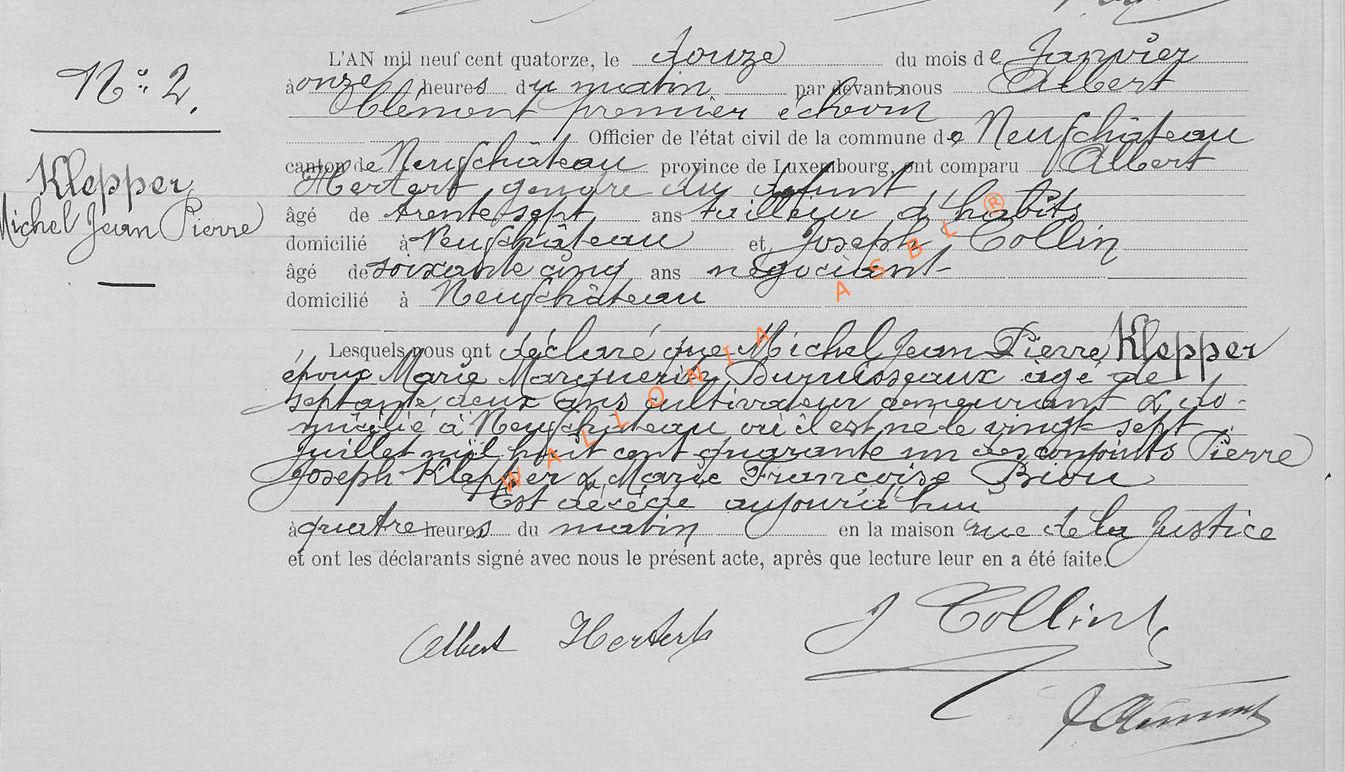 N° 2.
Klepper
Michel Jean Pierre
L'AN mil neuf cent quatorze, le douze du mois de Janvier
à onze heures du matin par devant nous Albert
Clément premier échevin
Officier de l'état civil de la commune de Neufchâteau
canton de Neufchâteau province de Luxembourg, ont comparu Albert
Herbert gendre du défunt
âgé de trente sept ans tailleur d'habits
domicilié à Neufchâteau et Joseph Collin
âgé de soixante cinq ans négociant
domicilié à Neufchâteau
Lesquels nous ont déclaré que Michel Jean Pierre Klepper
époux Marie Marguerite Duruisseaux âgé de
septante deux ans cultivateur demeurant & do-
micilié à Neufchâteau où il est né le vingt sept
Juillet mil huit cent quarante un des conjoints Pierre
Joseph Klepper & Marie Françoise Biou
Est décédé aujourd'hui
à quatre heures du matin en la maison rue de la Justice
et ont les déclarants signé avec nous le présent acte, après que lecture leur en a été faite.
Albert Herbert J Collin
A Clément
WALLONIA ASBL ®